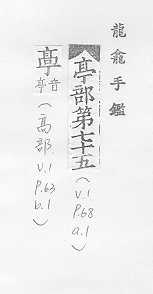 龍龕手鑑
亭部第七十五
(v.1
p.68
a.1)
音亭
(高部
v.1
p.63
b.1)